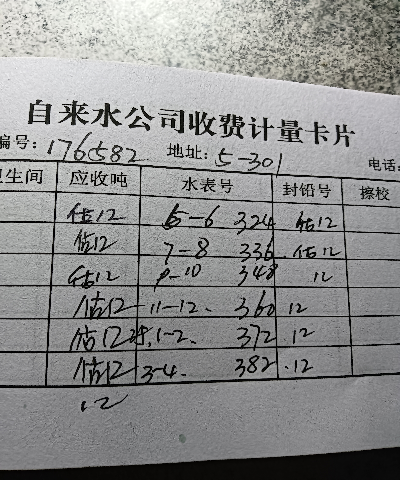 自来水公司收费计量卡片
编号: 176582 地址: 5-301 电话:
卫生间 应收吨 水表号 封铅号 擦校
估12 5-6 324 估12
估12 7-8 336 估12
估12 9-10 348 12
估12 11-12. 360 12
估12 1-2. 372 .12
估12 3-4. 382 .12
.12